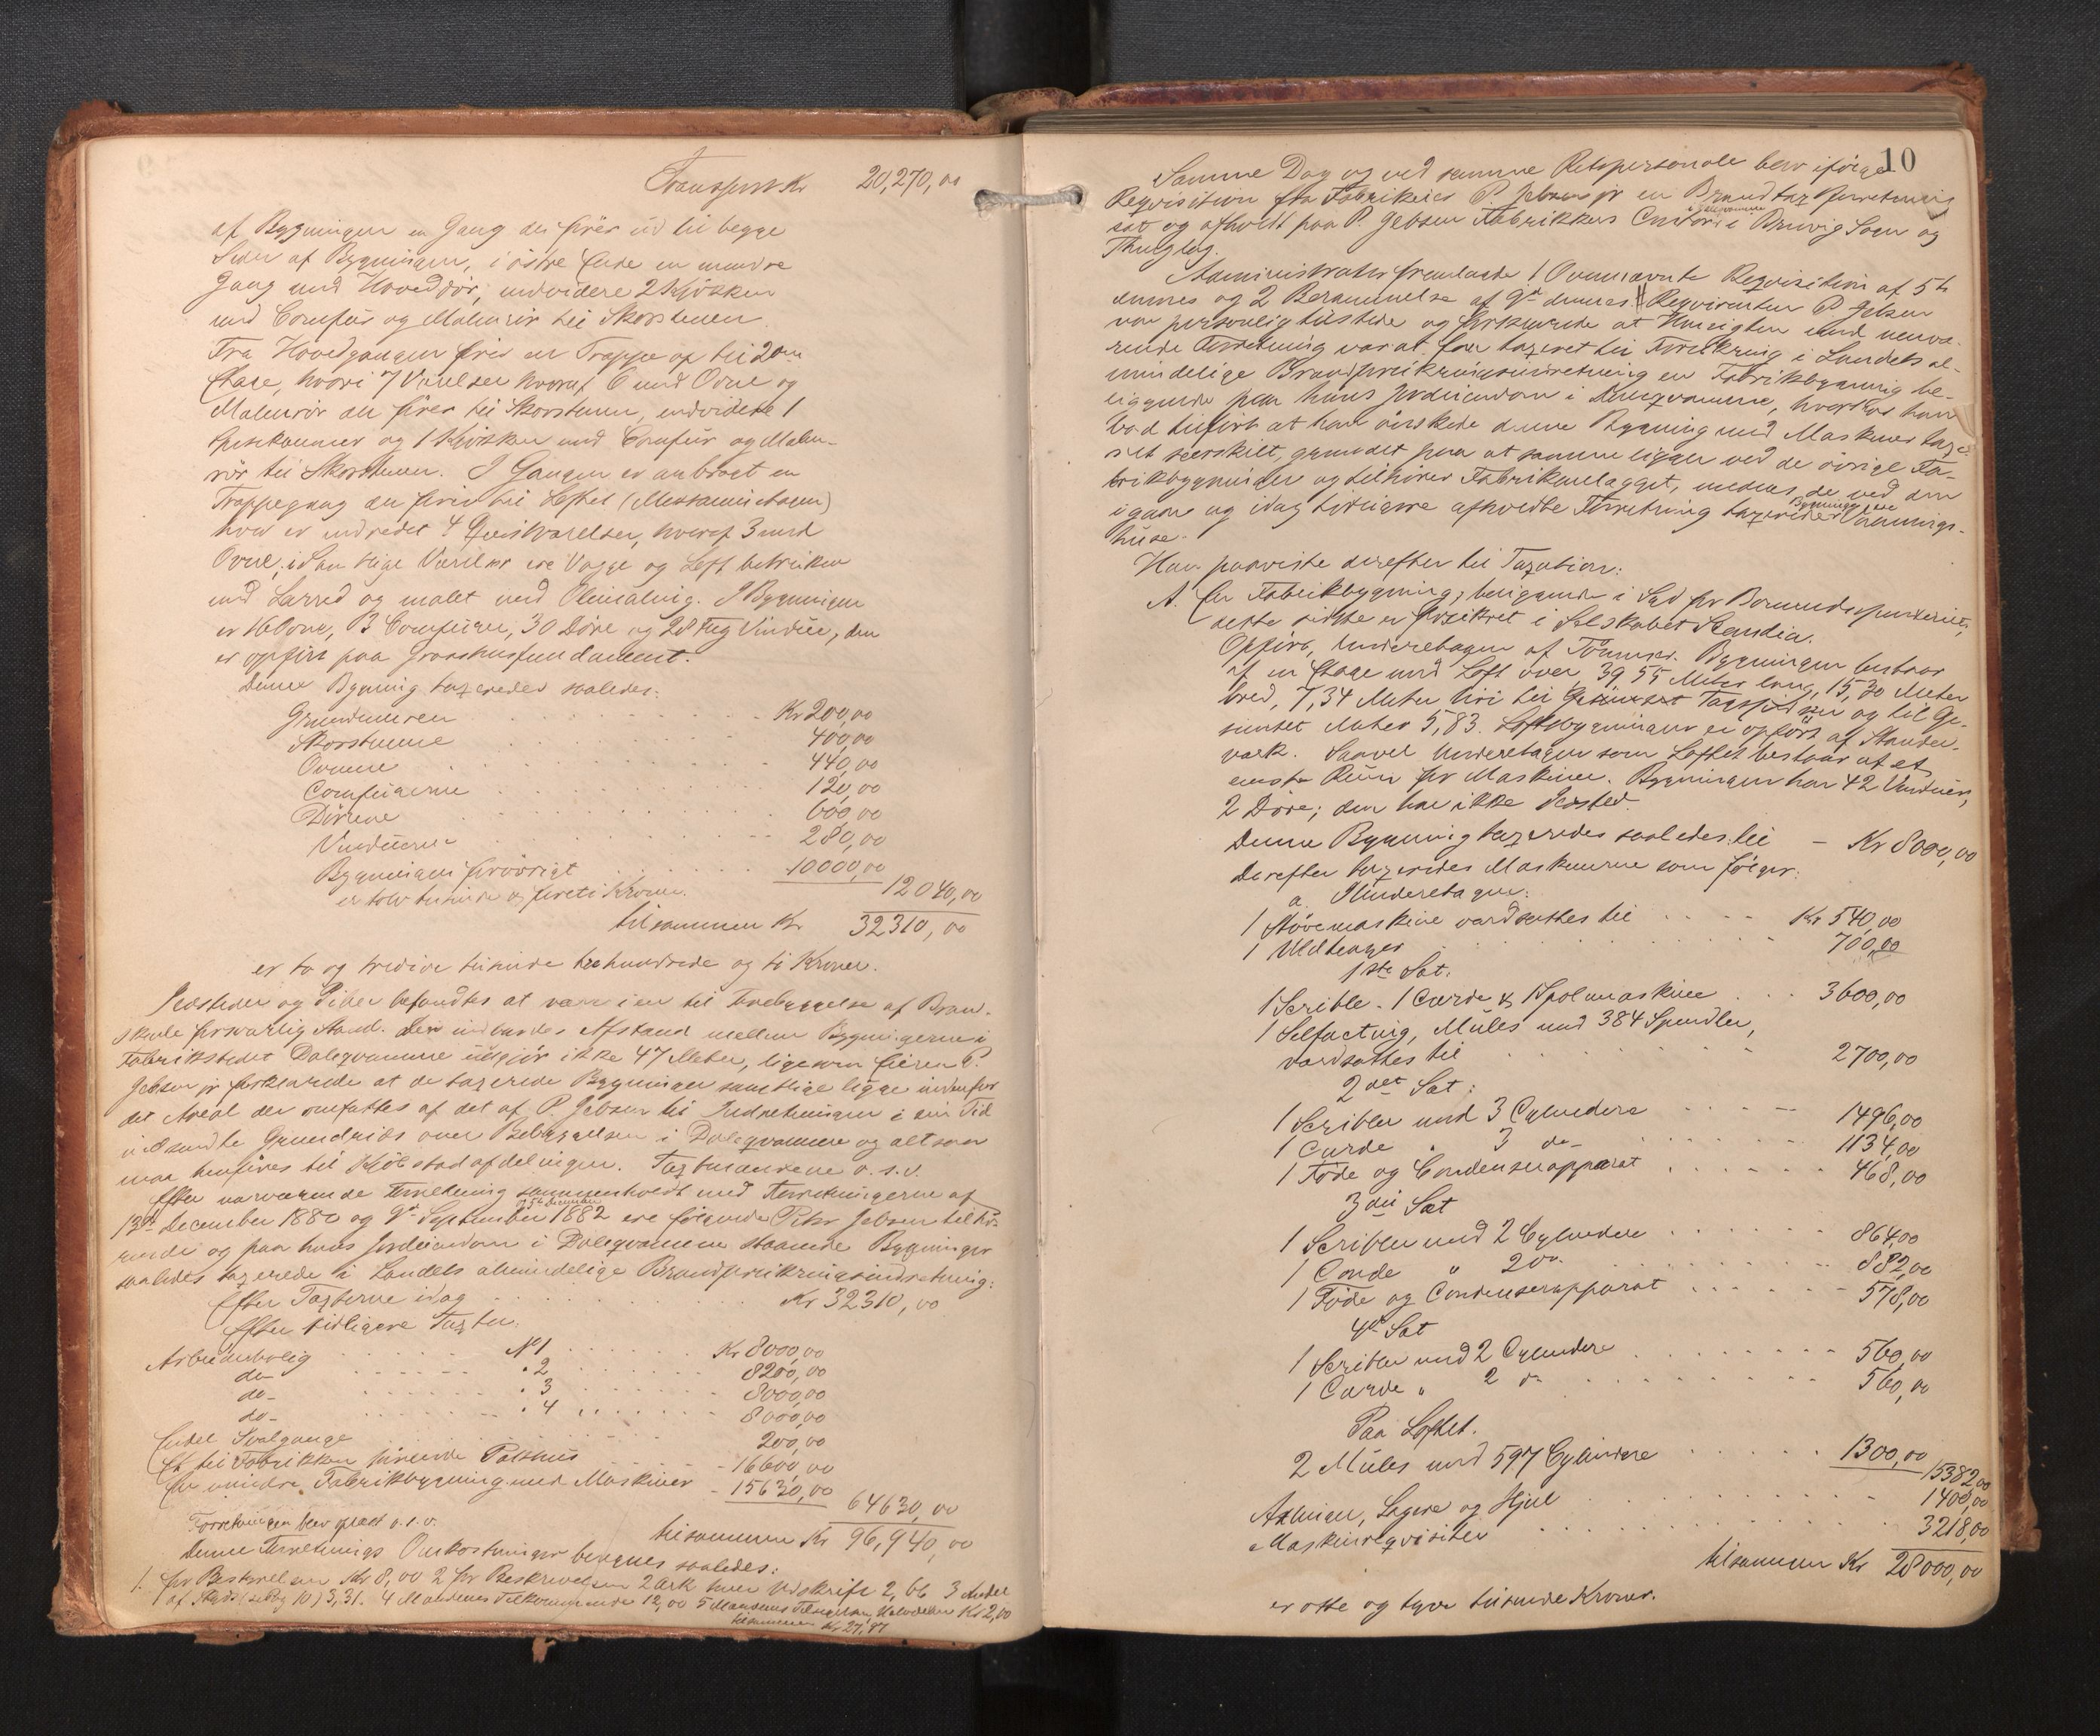 Transport Kr 20,270,00
af Bygningen en Gang der fører ud til begge
Sider af Bygningen, i østre Ende en mindre
Gang med Hoveddør, endvidere 2 Kjøkken
med Comfur og Malmrør til Skorstenen
Fra Hovedgangen fører en Trappe op til 2den
Etage, hvori 7 Værelser hvoraf 6 med Ovne og
Malmrør der fører til Skorstenen, endvidere 1
Spisekammer og 1 Kjøkken med Comfur og Malm-
rør til Skorstenen. I Gangen er anbragt en
Trappegang der fører til Loftet (Messanin Etagen)
hvor er indredet 4 Qvistværelser, hvoraf 3 med
Ovne, i Samtlige Værelser ere Vægge og Loft betrukne
med Lærred og malet med Oliemaling. I Bygningen
er 16 Ovne, 3 Comfurer, 30 Døre og 28 Fag Vinduer, den
er opført paa Graastensfundament.
Denne Bygning taxeredes saaledes:
Grundmuren Kr 200,00
Skorstenene 400,00
Ovnene 440,00
Comfurerne 120,00
Dørene 600,00
Vinduerne 280,00
Bygningen forøvrigt 10000,00
er tolv tusinde og fireti Kroner. 12040,00
tilsammen Kr 32310,00
er to og tredive tusinde trehundrede og ti Kroner.
Ildsteder og Piber befandtes at være i en til Forebyggelse af Brand-
skade forsvarlig Stand. Den indbyrdes Afstand mellem Bygningerne i
Fabrikstedet Daleqvamme udgjør ikke 47 Meter, ligesom Eieren P.
Jebsen jr forklarede at de taxerede Bygninger samtlige ligge indenfor
det Areal der omfattes af det af P. Jebsen til Indretningen i sin Tid
indsendte Grundrids over Bebyggelsen i Daleqvamme og altsaa
maa henføres til Kjøbstadafdelingen. Taxtmændene o. s. v.
Efter nærværende Forretning sammenholdt med Forretningerne af
13de December 1880 og 9de September 1882 ere følgende Peter Jebsen tilhø-
rende og paa hans Jordeiendom i Daleqvamme staaende Bygninger
saaledes taxerede i Landets almindelige Brandforsikringsindretning:
Efter Taxterne idag Kr 32310,00
Efter tidligere Taxter.
Arbeiderbolig No 1 Kr 8000,00
do - " 2 8200,00
do - " 3 8000,00
do - " 4 8000,00
Endel Svalgange 200,00
Et til Fabrikken hørende Pakhus 16600,00
En mindre Fabrikbygning med Maskiner 15630,00 64630,00
tilsammen Kr 96,940,00
Forretningen blev oplæst o. s. v.
Denne Forretnings Omkostninger beregnes saaledes:
1. for Bestyrelsen Kr 8,00 2 for Beskrivelsen 2 Ark samt Udskrift 2,66 3 Andel
af Skyds 3,31. 4 Mændenes Tilkommende 12,00 5 Mændenes Tilsigelse, Halvdelen Kr 2,00
tilsammen Kr 27,97
10
Samme Dag og ved samme Retspersonale blev ifølge
Reqvisition fra Fabrikeier P. Jebsen jr en Brandtaxtforretning
sat og afholdt paa P. Jebsen Fabrikkers Contor i Daleqvamme i Bruvig Sogn og
Thinglag.
Administrator fremlagde 1 Ovennævnte Reqvisition af 5te
dennes og 2 Berammelse af 9de dennes. Reqvirenten P. Jebsen
var personlig tilstede og forklarede at Hensigten med nærvæ-
rende Forretning var at faa taxeret til Forsikring i Landets al-
mindelige Brandforsikringsindretning en Fabrikbygning be-
liggende paa hans Jordeiendom i Daleqvamme, hvorhos han
bad tilført at han ønskede denne Bygning med Maskiner taxe-
ret særskilt, grundet paa at samme ligger ved de øvrige Fa-
brikbygninger og tilhører Fabrikanlægget, medens de ved den
igaar og idag tidligere afholdte Forretning taxerede Bygninger ere Vaanings-
huse.
Han paaviste derefter til Taxation:
A. En Fabrikbygning, beliggende i Syd for Bomuldsspinderiet,
dette sidste er forsikret i Selskabet Skandia.
Opført, Underetagen af Tømmer. Bygningen bestaar
af en Etage med Loft over, 39,55 Meter lang, 15,30 Meter
bred, 7,34 Meter høi til Tagspidsen og til Ge-
simset Meter 5,83. Loftsbygningen er opført af Stander-
værk. Saavel Underetagen som Loftet bestaar af et
eneste Rum for Maskiner. Bygningen har 42 Vinduer,
2 Døre; den har ikke Ildsted.
Denne Bygning taxeredes saaledes til - Kr 8000,00
Derefter taxeredes Maskinerne som følger:
a. Underetagen:
1 Støvemaskine værdsættes til Kr 540,00
1 Uldtenzer 700,00
1ste Sæt.
1 Scribler - 1 Carde & 1 Spolmaskine 3600,00
1 Selfacting, Mules med 384 Spindler,
værdsættes til 2700,00
2det Sæt:
1 Scribler med 3 Cylindere 1496,00
1 Carde " 3 do - 1134,00
1 Føde og Condenserapparat 468,00
3die Sæt
1 Scribler med 2 Cylindere 864,00
1 Carde " 2 do. 882,00
1 Føde og Condenserapparat 578,00
4de Sæt
1 Scribler med 2 Cylindere 560,00
1 Carde " 2 do 560,00
Paa Loftet.
2 Mules med 597 Cylindere 1300,00 15382,00
Axlinger, Lagere og Hjul 1400,00
Maskinreqvisiter 3218,00
tilsammen Kr 28000,00
er otte og tyve tusinde Kroner.